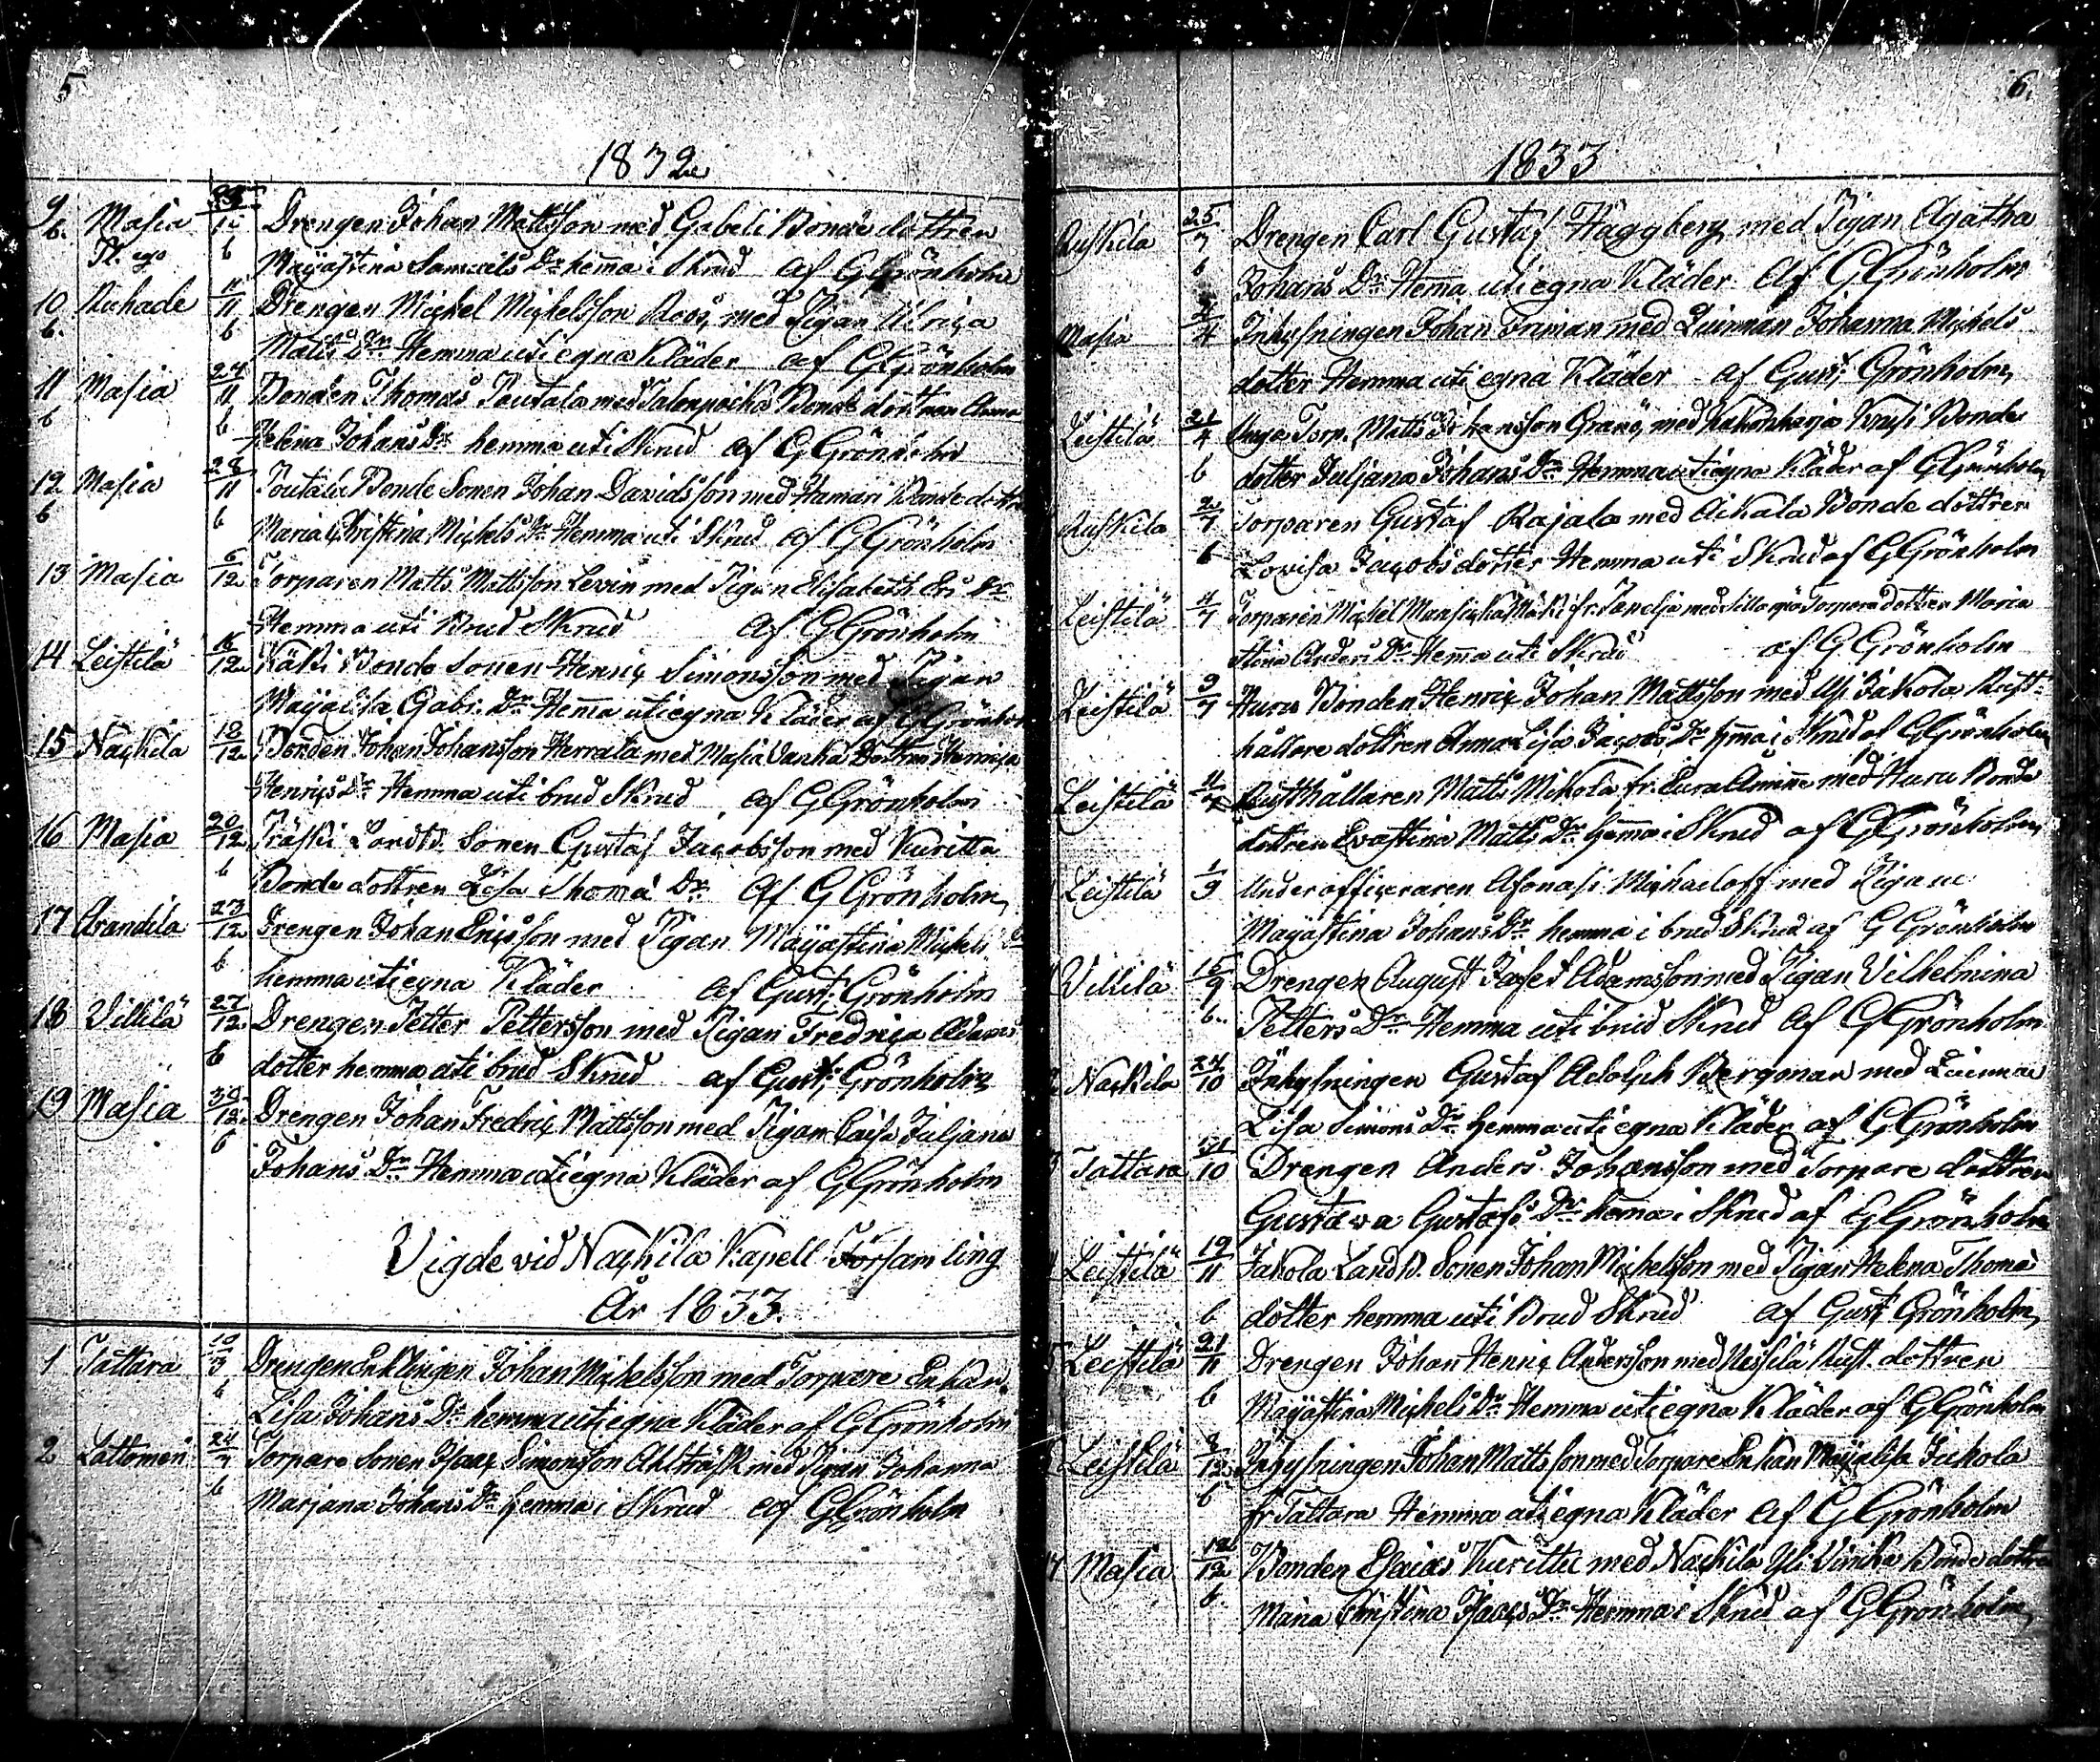 5
1832
9 Masia 11 Drengen Johan Mattsson med Gabeli Bonde dottren
b. b Majastina Samuels Dr hemma i Skrud af G Grönholm
10 Ruhade 11/11 Drengen Michel Michelsson Roos, med Pigan Ulrica
b. b Matts Dr Hemma uti egna Kläder af G Grönholm
11 Masia 24/11 Bonden Thomas Poutala med Bonde dottren Anna
b b Helena Johans Dr hemma uti Skrud af G Grönholm
12 Masia 28/11 Poutala Bonde Sonen Johan Davidsson med Hamari Bonde dottr
b b Maria Christina Michels Dr Hemma uti Skrud af G Grönholm
13 Masia 6/12 Torparen Matts Mattsson Levin med Pigan Elisabeth Ers Dr
Hemma uti Brud Skrud af G Grönholm
14 Leistilä 16/12 Käki Bonde Sonen Henric Simonsson med Pigan
Majalisa Gabr. Dr Hema uti egna Kläder af G Grönholm
15 Nackila 18/12 Bonden Johan Johansson Herrala med Masia Vanha Dottren Henrica
Henrics Dr Hemma uti brud Skrud af G Grönholm
16 Masia 20/12 Präski Sonen Gustaf Jacobsson med Kuritta
b Bonde dottren Lisa Thoma Dr af G Grönholm
17 Arandila 23/12 Drengen Johan Ericsson med Pigan Majastina Michels Dr
b hemma uti egna Kläder af Gust: Grönholm
18 Villilä 27/12 Drengen Petter Pettersson med Pigan Fredrica Adams
b dotter hemma uti brud Skrud af Gust: Grönholm
19 Masia 30/12 Drengen Johan Fredric Mattsson med Pigan Caisa Juljana
b Johans Dr Hemma uti egna Kläder af G Grönholm
Vigde vid Nackila Kapell Församling
År 1833.
1 Tattara 10/3 Drengen Enklingen Johan Michelsson med Torpare Enkan
b Lisa Johans Dr hemma uti egna Kläder af G Grönholm
2 Lattomeri 24/3 Torpare Sonen Isaac Simonsson Ahlträsk med Pigan Johanna
b Marjana Johans Dr hemma i Skrud af G Grönholm
6.
1833
Ruskila 25/3 Drengen Carl Gustaf Häggberg med Pigan Agatha
b Johans Dr Hema uti egna Kläder af G Grönholm
Masia 4 Inhysningen Johan Friman med Quinnan Johanna Michels
dotter Hemma uti egna Kläder af Gust: Grönholm
Leistilä 21/4 Torp. Matts Johansson Granö, med Bonde
b dotter Juljana Johans Dr Hemma uti egna Kläder af G Grönholm
Ruskila 2/7 Torparen Gustaf Rajala med Aikala Bonde dottren
b Lovisa Jacobs dotter Hemma uti Skrud af G Grönholm
Leistilä 4/7 Torparen Michel med Torpare dotter Maria
Stina Anders Dr Hema uti Skrud af G Grönholm
Leistilä 9/7 Huru Bonden Henric Johan Mattsson med Jakola Rust-
hållare dottren Anna Lisa Jacobs Dr hma i Skrud af G Grönholm
Leistilä Rusthållaren Matts Mikola fr. Eura med Huru Bonde
dottren Evastina Matts Dr hema i Skrud af G Grönholm
Leistilä 1/9 Underofficeraren Afonasi Michaeloff med Pigan
Majastina Johans Dr hemma i brud Skrud af G Grönholm
Villilä 15/9 Drengen August Jafet Adamsson med Pigan Vilhelmina
b. Petters Dr Hemma uti brud Skrud af G Grönholm
Nackila 24/10 Inhysningen Gustaf Adolph Bergman med Quinnan
Lisa Simons Dr hemma uti egna Kläder af G Grönholm
Tattara 31/10 Drengen Anders Johansson med Torpare dottren
Gustava Gustafs Dr hema i Skrud af G Grönholm
Leistilä 19/11 Jakola Landb. Sonen Johan Michelsson med Pigan Helena Thoma
b dotter hemma uti Brud Skrud af Gust: Grönholm
Leistilä 21/11 Drengen Johan Henric Andersson med Rust. dottren
b Majastina Michels Dr Hemma uti egna Kläder af G Grönholm
Leistilä 12 Inhysningen Johan Mattsson med Torpare Enkan Majalisa Jakola
b fr Tattara Hemma uti egna Kläder af G Grönholm
Masia 12/12 Bonden Esaias Kuritta med Nackila Bonde dottren
b. Maria Christina Isacs Dr Hemma i Skrud af G Grönholm